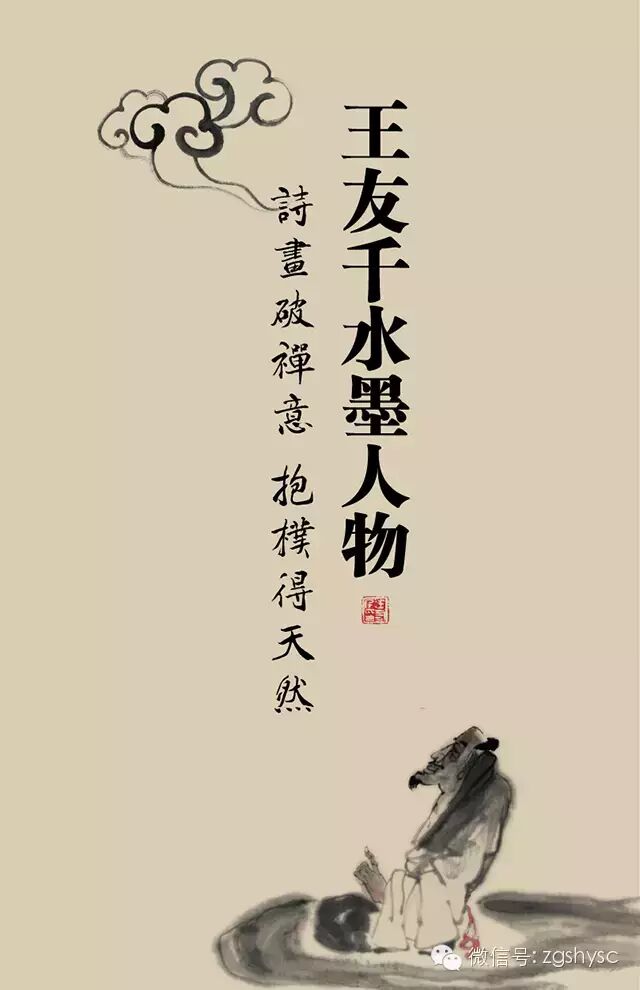 王友千水墨人物
詩畫破禪意 抱樸得天然
微信号: zgshysc